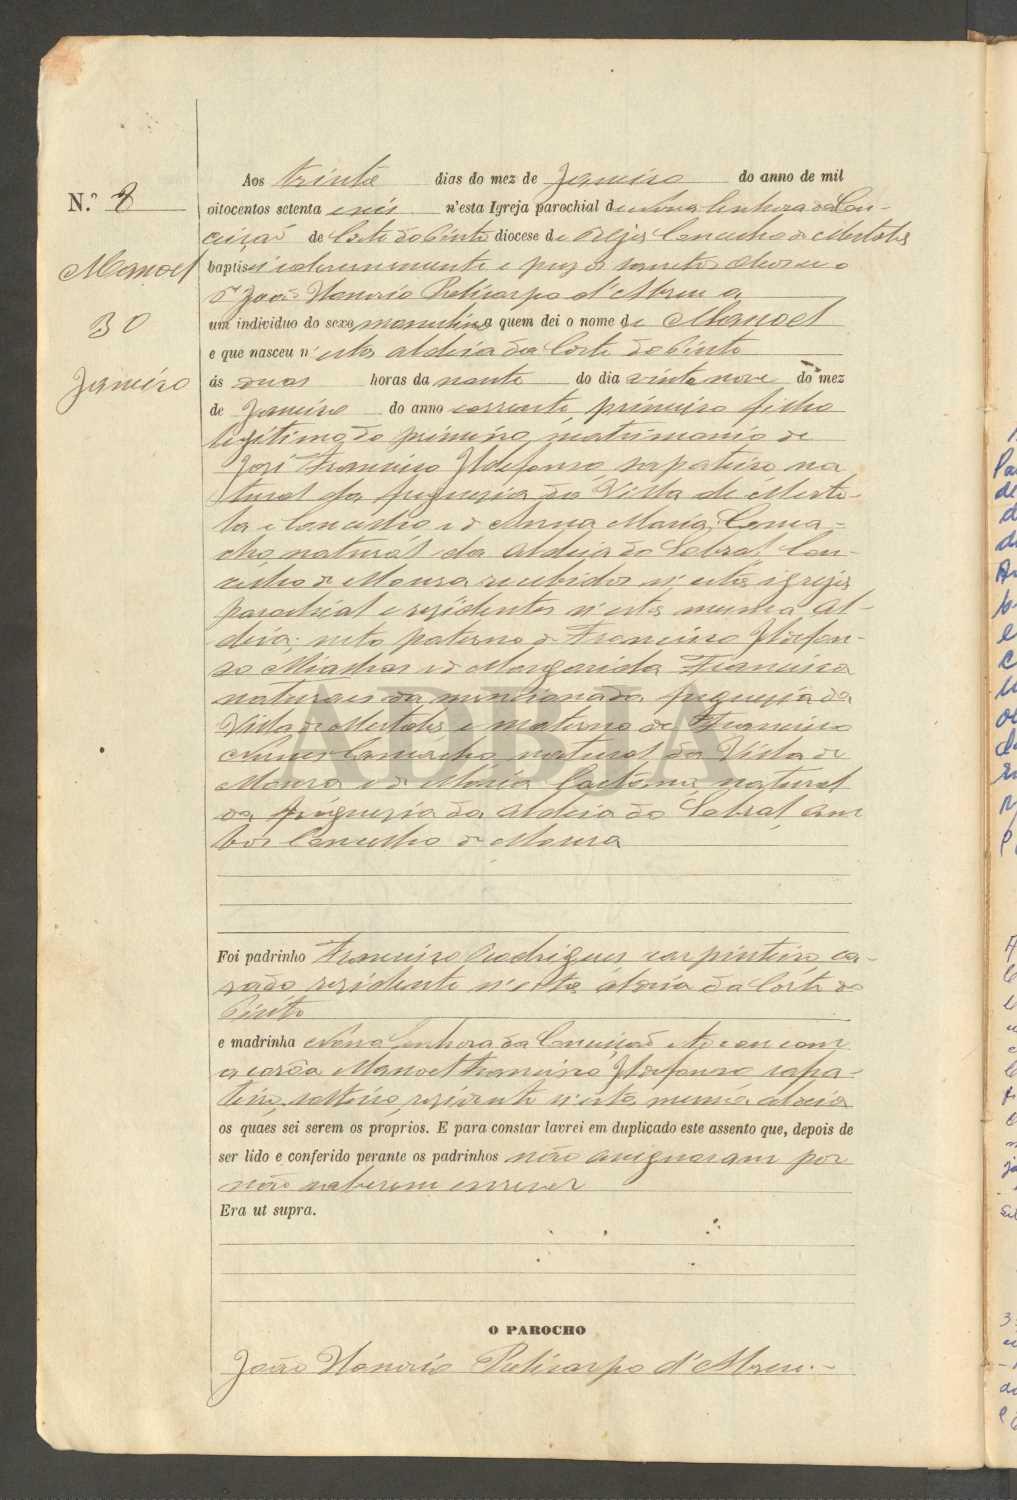 Aos trinta dias do mez de Janeiro do anno de mil
N.º 8 oitocentos setenta e seis n'esta Igreja parochial de Nossa Senhora da Con-
ceição de Corte do Pinto diocese de Beja Concelho de Mertola
Manoel
baptisei solemnemente e puz os sanctos oleos
João Honorio Policarpo d'Abreu a
um individuo do sexo masculino a quem dei o nome de Manoel
30
e que nasceu n'esta aldeia da Corte do Pinto
Janeiro
ás duas horas da noute do dia vinte nove do mez
de Janeiro do anno corrente primeiro filho
legitimo do primeiro matrimonio de
José Francisco Ildefonso, sapateiro na
tural da freguezia da Villa de Merto-
la e Concelho e de Anna Maria Cama-
cho natural da aldeia do Sobral Con-
celho de Moura recebidos n'esta igreja
parochial e residentes n'esta mesma al-
deia; neto paterno de Francisco Ildefon-
so e de Margarida Francisca
naturaes da mencionada freguezia da
Villa de Mertola e materno de Francisco
Nunes Camacho natural da Villa de
Moura e de Maria Caetana natural
da freguezia da aldeia do Sobral am
bos Concelho de Moura
ADBJA
Foi padrinho Francisco Rodrigues carpinteiro ca-
sado residente n'esta aldeia da Côrte do
Pinto
e madrinha Nossa Senhora da Conceição e tocou com
a corôa Manoel Francisco Ildefonso sapa-
teiro, solteiro, residente n'esta mesma aldeia
os quaes sei serem os proprios. E para constar lavrei em duplicado este assento que, depois de
ser lido e conferido perante os padrinhos não assignaram por
não saberem escrever
Era ut supra.
O PAROCHO
João Honorio Policarpo d'Abreu